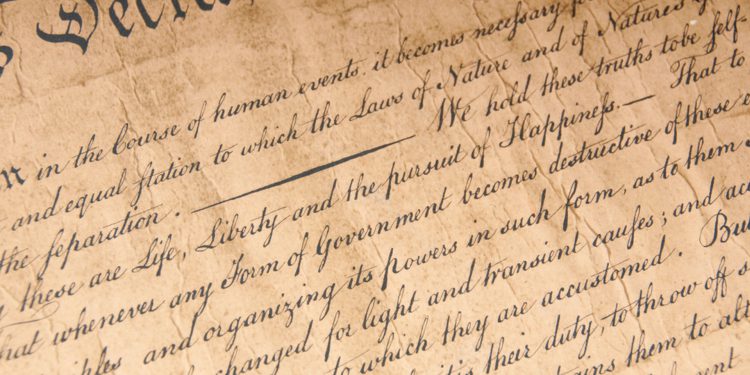 Decla
in the Course of human events, it becomes necessary
and equal ſtation to which the Laws of Nature and of Nature's
the ſeparation. — We hold these truths to be ſelf-
these are Life, Liberty and the pursuit of Happineſs. — That to
hat whenever any Form of Government becomes destructive of these e
and organizing its powers in such form, as to them
changed for light and transient cauſes; and acc
to which they are accustomed. Bu
is their duty, to throw off s
them to alt